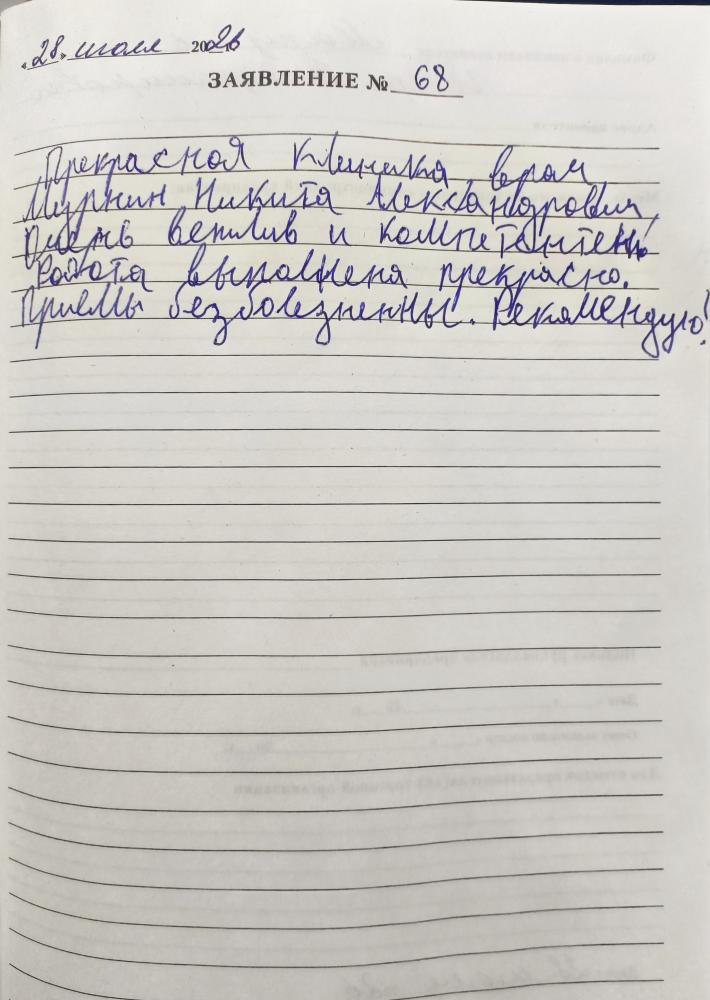 «28» июля 2026
ЗАЯВЛЕНИЕ № 68
Прекрасная клиника, врач
Никита Александрович,
Очень вежлив и компетентен.
Работа выполнена прекрасно.
Приемы безболезненны. Рекомендую!